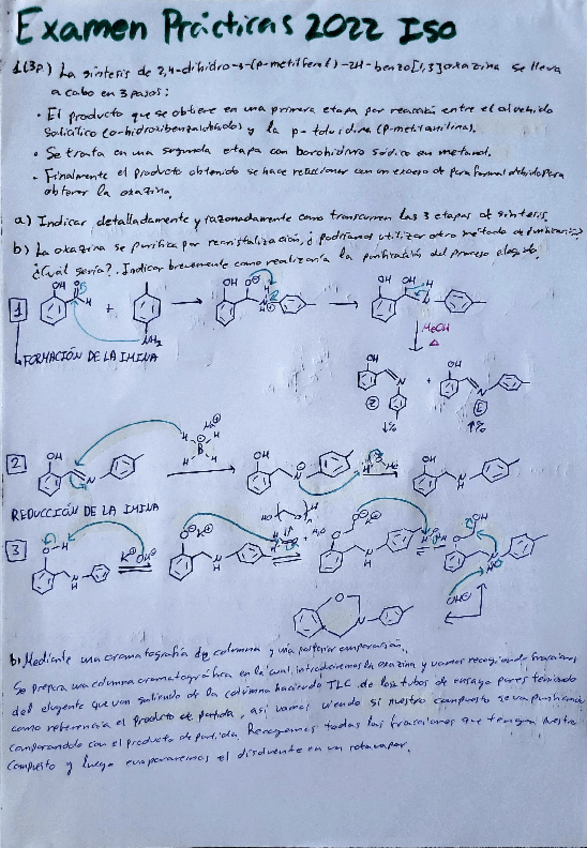 Examen Prácticas 2022 Iso
1(3p.) La síntesis de 2,4-dihidro-3-(p-metilfenil)-2H-benzo[1,3]oxazina se lleva
a cabo en 3 pasos:
· El producto que se obtiene en una primera etapa por reacción entre el aldehído
salicílico (o-hidroxibenzaldehído) y la p-toluidina (p-metilanilina).
· Se trata en una segunda etapa con borohidruro sódico en metanol.
· Finalmente el producto obtenido se hace reaccionar con un exceso de paraformaldehído para
obtener la oxazina.
a) Indicar detalladamente y razonadamente como transcurren las 3 etapas de síntesis.
b) La oxazina se purifica por recristalización, ¿podríamos utilizar otro método de purificación?
¿Cuál sería?. Indicar brevemente como realizaría la purificación del proceso elegido.
1
OH
+
NH₂
OH
OH
MeOH
Δ
FORMACIÓN DE LA IMINA
OH
N
Z
↓%
+
OH
N
E
↑%
2
OH
N
H
B
H
OH
N
OH
N
H
REDUCCIÓN DE LA IMINA
3
O-H
N
H
K⊕OH⊖
O⊖K⊕
N
H
+ H₂O
O⊖K⊕
N
H
OH
N
OH⊖
O
N
b. Mediante una cromatografía de columna y una posterior evaporación.
Se prepara una columna cromatográfica en la cual introduciremos la oxazina y vamos recogiendo fracciones
del eluyente que van saliendo de la columna haciendo TLC de los tubos de ensayo pares teniendo
como referencia el producto de partida, así vamos viendo si nuestro compuesto se va purificando
comparandolo con el producto de partida. Recogemos todas las fracciones que tengan nuestro
compuesto y luego evaporaremos el disolvente en un rotavapor.